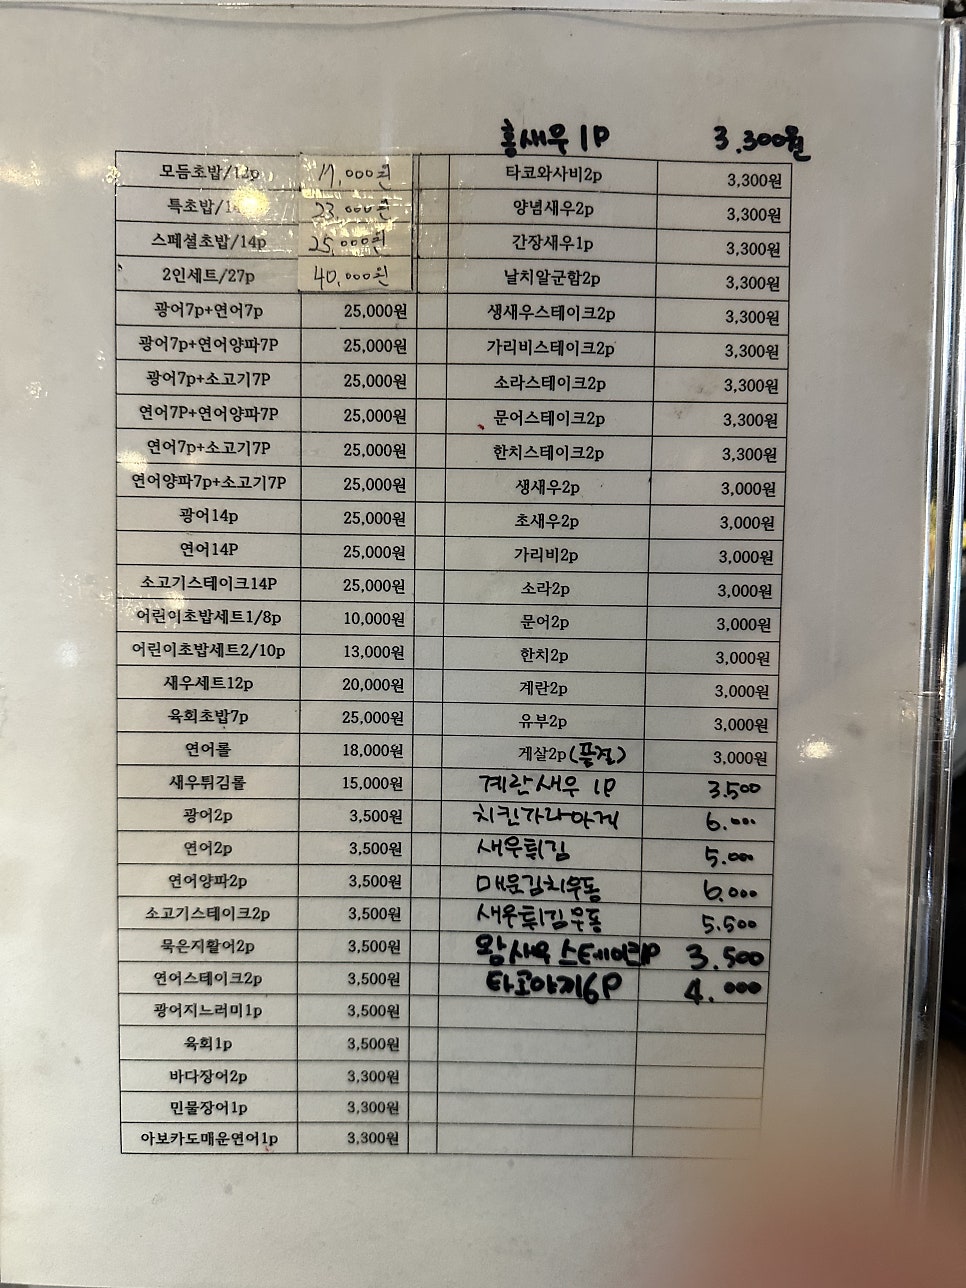 홍새우 1P 3.300원
모듬초밥/12p 17,000원
특초밥/ 23,000원
스페셜초밥/14p 25,000원
2인세트/27p 40,000원
광어7p+연어7p 25,000원
광어7p+연어양파7P 25,000원
광어7p+소고기7P 25,000원
연어7P+연어양파7P 25,000원
연어7p+소고기7P 25,000원
연어양파7p+소고기7P 25,000원
광어14p 25,000원
연어14P 25,000원
소고기스테이크14P 25,000원
어린이초밥세트1/8p 10,000원
어린이초밥세트2/10p 13,000원
새우세트12p 20,000원
육회초밥7p 25,000원
연어롤 18,000원
새우튀김롤 15,000원
광어2p 3,500원
연어2p 3,500원
연어양파2p 3,500원
소고기스테이크2p 3,500원
묵은지활어2p 3,500원
연어스테이크2p 3,500원
광어지느러미1p 3,500원
육회1p 3,500원
바다장어2p 3,300원
민물장어1p 3,300원
아보카도매운연어1p 3,300원
타코와사비2p 3,300원
양념새우2p 3,300원
간장새우1p 3,300원
날치알군함2p 3,300원
생새우스테이크2p 3,300원
가리비스테이크2p 3,300원
소라스테이크2p 3,300원
문어스테이크2p 3,300원
한치스테이크2p 3,300원
생새우2p 3,000원
초새우2p 3,000원
가리비2p 3,000원
소라2p 3,000원
문어2p 3,000원
한치2p 3,000원
계란2p 3,000원
유부2p 3,000원
게살2p(품절) 3,000원
계란새우 1P 3.500
치킨가라아게 6.000
새우튀김 5.000
매운김치우동 6.000
새우튀김우동 5.500
왕새우 스테이크1P 3.500
타코야끼6P 4.000